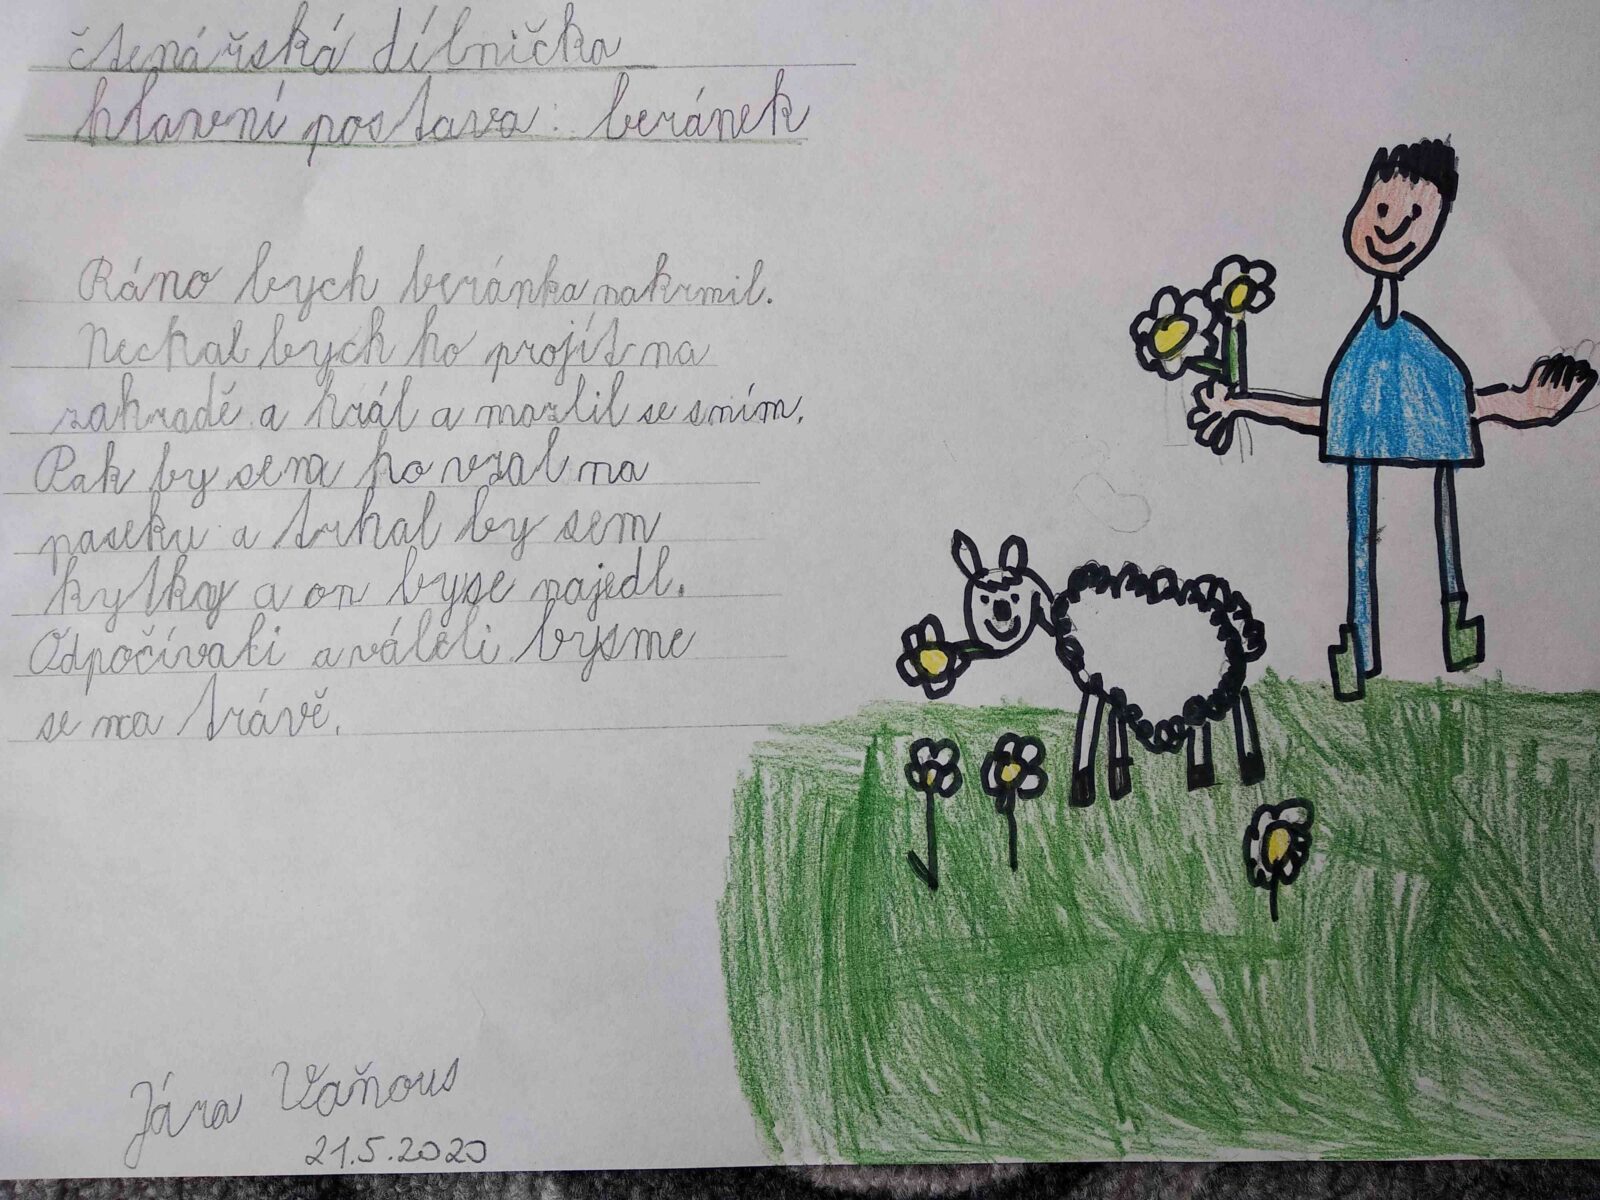 čtenářská dílnička
hlavní postava: beránek
Ráno bych beránka nakrmil.
Nechal bych ho projít na
zahradě a hrál a mazlil se sním.
Pak by sem ho vzal na
paseku a trhal by sem
kytky a on byse najedl.
Odpočívali a váleli bysme
se na trávě.
Jára Vaňous
21.5.2020